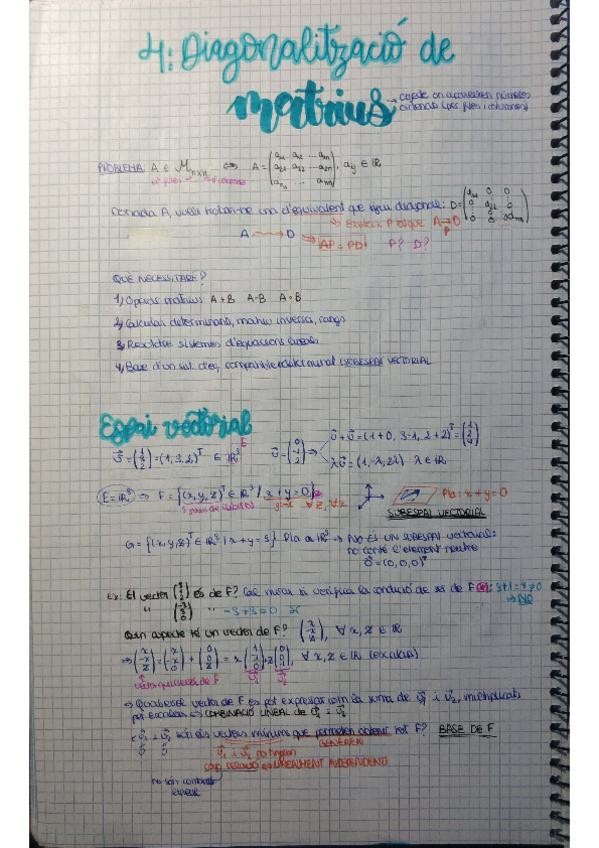 4: Diagonalització de
matrius → objecte on apareixen números
ordenats (per files i columnes)
PROBLEMA: A ∈ M_{n×n} ⇔ A = (a_{11} a_{12} ... a_{1n}; a_{21} a_{22} ... a_{2n}; a_{n1} ... a_{nn}), a_{ij} ∈ ℝ
nº files nº columnes
Donada A, trobar-ne una d'equivalent que sigui diagonal: D = (d_{11} 0 0; 0 d_{22} 0; 0 0 d_{nn})
→ Existeix P tq A → D
P
A ⟿ D → AP = PD P? D?
QUÈ NECESSITARÉ?
1) Operar matrius A+B A-B A·B
2) Calcular determinants, matriu inversa, rangs
3) Resoldre sistemes d'equacions lineals
4) Base d'un SUBESPAI VECTORIAL
Espai vectorial
v⃗ = (1; 3; 2) = (1,3,2)ᵀ ∈ ℝ³ u⃗ = (0; -1; 2)
E
→ v⃗ + u⃗ = (1+0, 3-1, 2+2)ᵀ = (1; 2; 4)
→ λu⃗ = (1, -λ, 2λ) λ ∈ ℝ
E = ℝ³ ⇒ F = {(x,y,z)ᵀ ∈ ℝ³ / x+y=0} Pla: x+y=0
y=-x ∀z, ∀x
SUBESPAI VECTORIAL
G = {(x,y,z)ᵀ ∈ ℝ³ / x+y=3} Pla a ℝ³ → NO ÉS UN SUBESPAI vectorial:
no conté l'element neutre
0⃗ = (0,0,0)ᵀ
Ex: El vector és de F? Cal mirar si verifica la condició de ser de F: 3+1=4≠0
⇒ NO
" (-3; 3; 0) " -3+3=0
Quin aspecte té un vector de F? (x; -x; z), ∀ x,z ∈ ℝ
⇒ (x; -x; z) = (x; -x; 0) + (0; 0; z) = x(1; -1; 0) + z(0; 0; 1), ∀ x,z ∈ ℝ (escalars)
vector qualsevol de F v⃗₁ v⃗₂
⇒ Qualsevol vector de F es pot expressar com la suma de v⃗₁ i v⃗₂, multiplicats
per escalars ⇔ COMBINACIÓ LINEAL de v⃗₁ i v⃗₂
¿ v⃗₁ i v⃗₂ són els vectors mínims que permeten obtenir tot F? BASE DE F
GENEREN
v⃗₁ i v⃗₂ no tinguin
cap relació ⇔ LINEALMENT INDEPENDENT
no són combinació
lineal